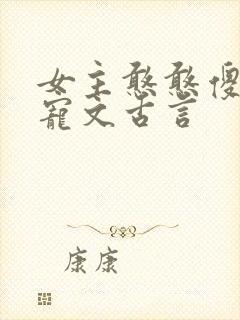 女主憨憨傻
寵文古言
康康